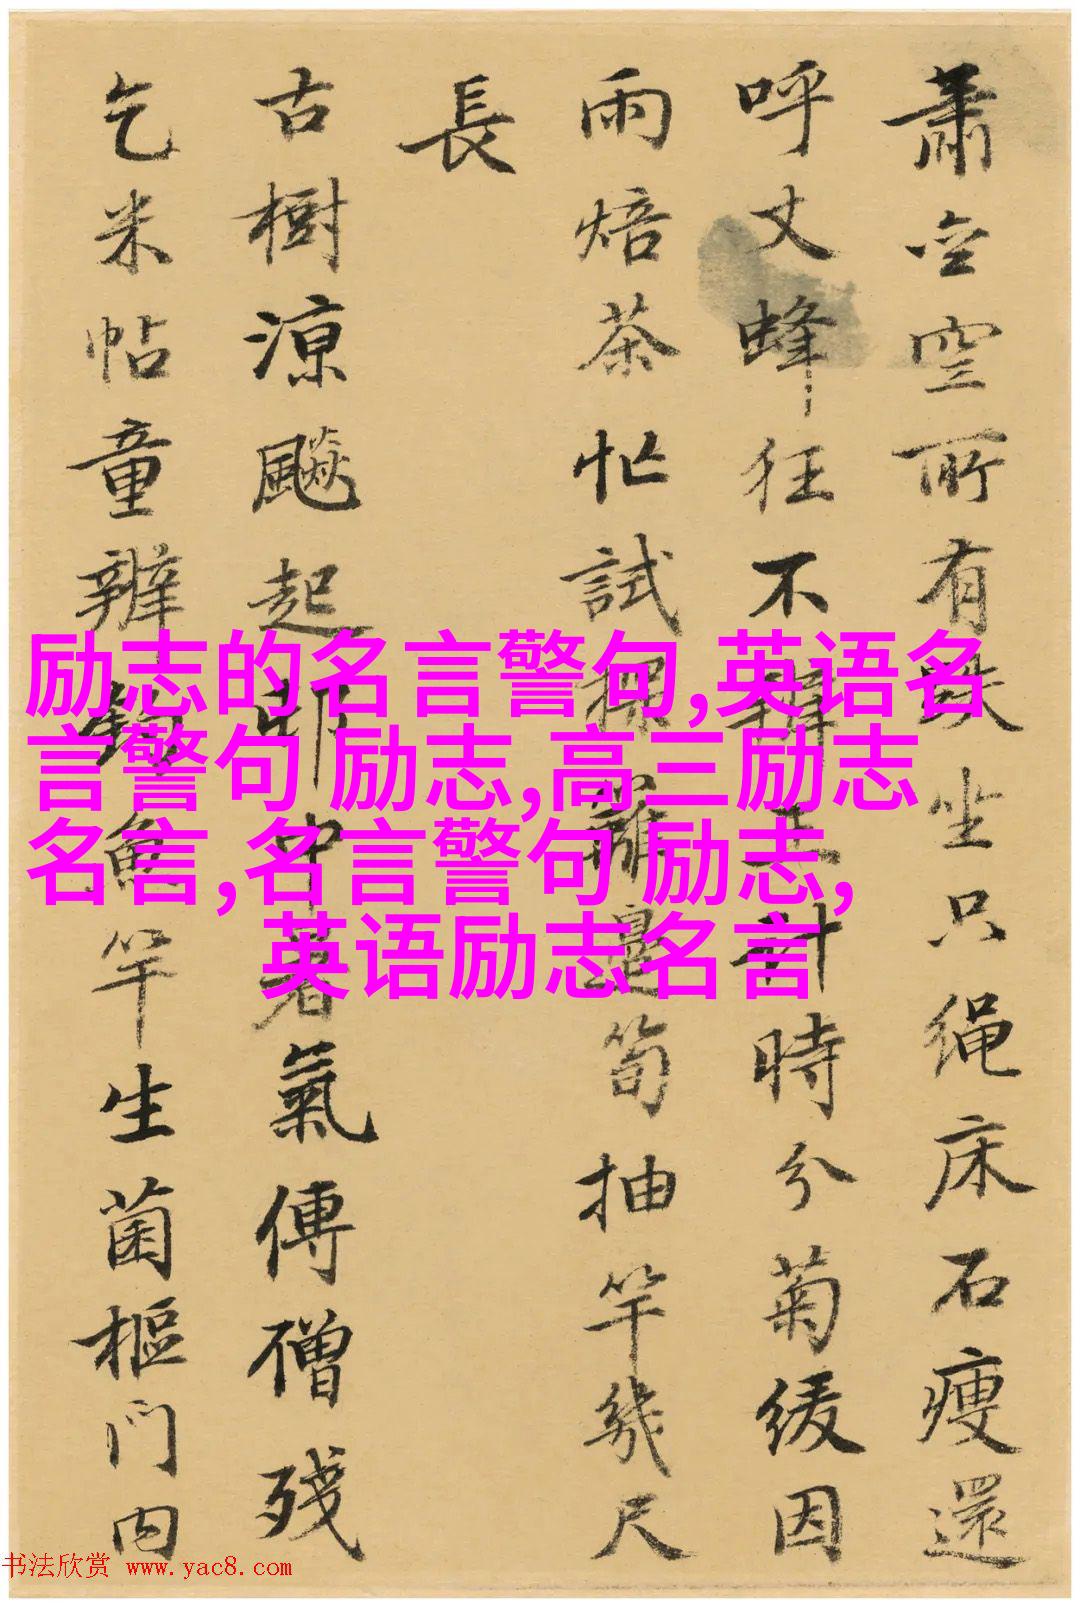 空所有坐只绳床石瘦還
呼丈蜂狂不計時分菊緩因
雨焙茶忙試籬邊筍抽竿幾尺
長
古樹涼飈起中氣傳僧残
乞米帖童辨釣魚竿生菌樞門内
励志的名言警句,英语名
言警句 励志,高三励志
名言,名言警句 励志,
英语励志名言
书法欣赏 www.yac8.com